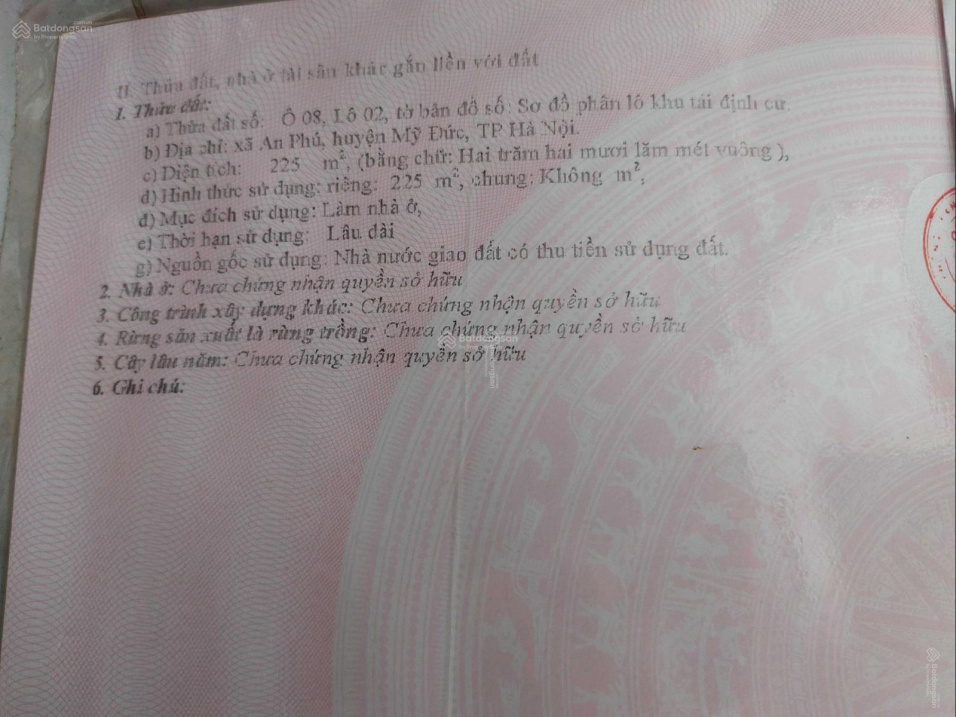 Batdongsan
II. Thửa đất, nhà ở tài sản khác gắn liền với đất
1. Thửa đất:
a) Thửa đất số: Ô 08, Lô 02, tờ bản đồ số: Sơ đồ phân lô khu tái định cư.
b) Địa chỉ: xã An Phú, huyện Mỹ Đức, TP Hà Nội.
c) Diện tích: 225 m², (bằng chữ: Hai trăm hai mươi lăm mét vuông ),
d) Hình thức sử dụng: riêng: 225 m², chung: Không m²,
đ) Mục đích sử dụng: Làm nhà ở,
e) Thời hạn sử dụng: Lâu dài
g) Nguồn gốc sử dụng: Nhà nước giao đất có thu tiền sử dụng đất.
2. Nhà ở: Chưa chứng nhận quyền sở hữu
3. Công trình xây dựng khác: Chưa chứng nhận quyền sở hữu
4. Rừng sản xuất là rừng trồng: Chưa chứng nhận quyền sở hữu
Batdongsan
5. Cây lâu năm: Chưa chứng nhận quyền sở hữu
6. Ghi chú: